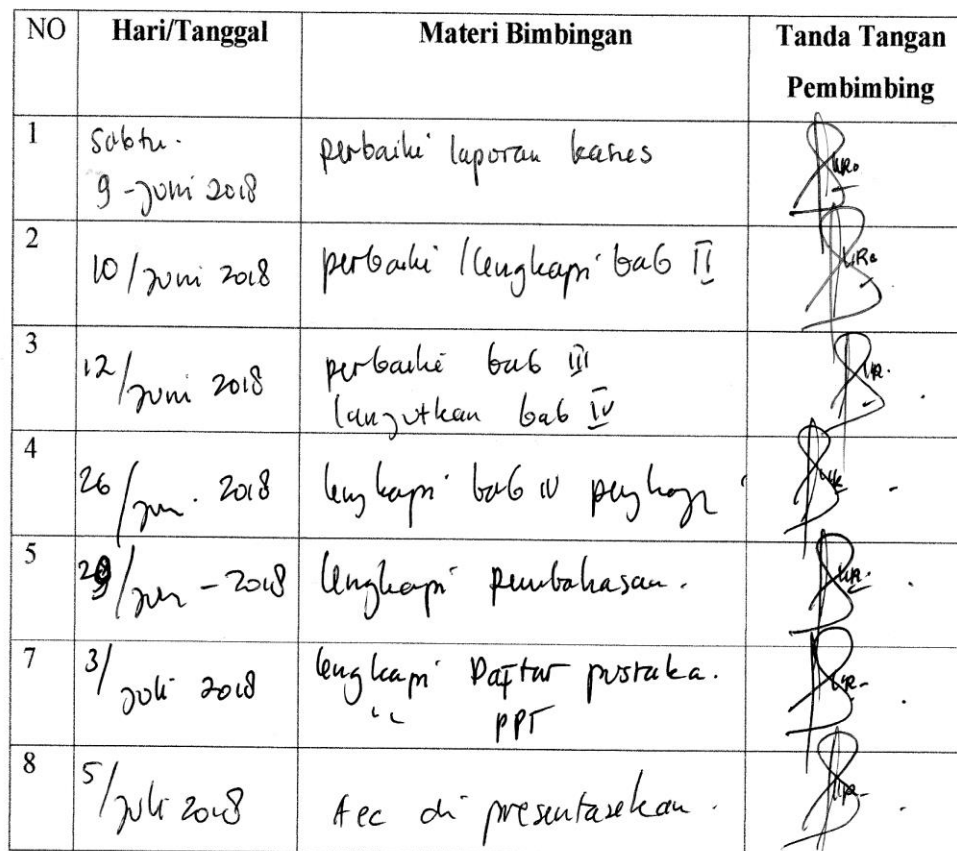 NO Hari/Tanggal Materi Bimbingan Tanda Tangan
Pembimbing
1 Sabtu. perbaiki laporan kasus
9 - Juni 2018
2 10/Juni 2018 perbaiki / lengkapi bab II
3 12/Juni 2018 perbaiki bab III
lanjutkan bab IV
4 26/Jun. 2018 lengkapi bab IV
5 29/Jun - 2018 lengkapi pembahasan.
7 3/Juli 2018 lengkapi Daftar pustaka.
" PPT
8 5/Juli 2018 Acc di presentasekan.